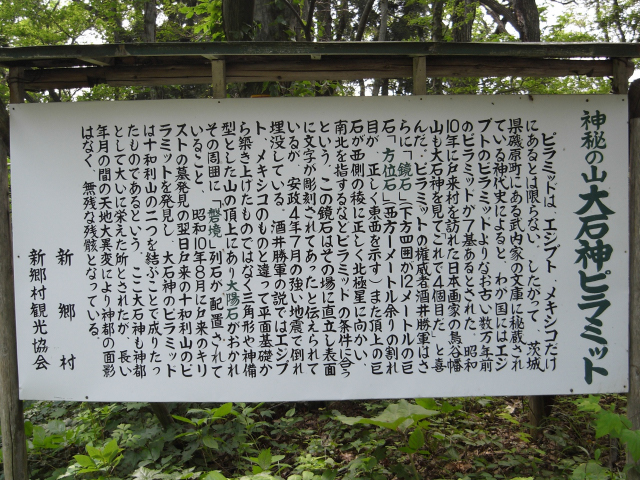 神秘の山大石神ピラミッド
ピラミッドは、エジプト、メキシコだけ
にあるとは限らない。したがって、茨城
県磯原町にある武内家の文庫に秘蔵され
ている神代史によると、わか国にはエジ
プトのピラミッドよりなお古い数万年前
のピラミッドが7基あるとされた。昭和
10年に戸来村を訪れた日本画家の鳥谷幡
山も大石神を見て「これで4個目だ」と喜
んだ。ピラミットの権威者酒井勝軍はさ
らに「鏡石」(下方四囲か12メートルの巨
石)「方位石」(西方一メートル余りの割れ
目が、正しく東西を示す)また頂上の巨
石が西側の稜に正しく北極星に向かい、
南北を指するなどピラミットの条件に合う
という。この鏡石はその場に直立し表面
に文字が彫刻されてあったと伝えられて
いるが、安政4年7月の強い地震で倒れ
埋没している。酒井勝軍の説ではエジプ
ト、メキシコのものと違って平面基礎か
ら築き上げたものではなく三角形や神備
型とした山の頂上にあり太陽石がおかれ
その周囲に「磐境」列石が配置されて
いること、昭和10年8月に戸来のキリ
ストの墓発見の翌日戸来の十和利山のピ
ラミットを発見し、大石神のピラミッド
は十和利山の二つを結ぶことで成りたっ
たものであるという。ここ大石神も神都
として大いに栄えた所とされたが、長い
年月の間の天地大異変により神都の面影
はなく、無残な残骸となっている。
新郷村
新郷村観光協会